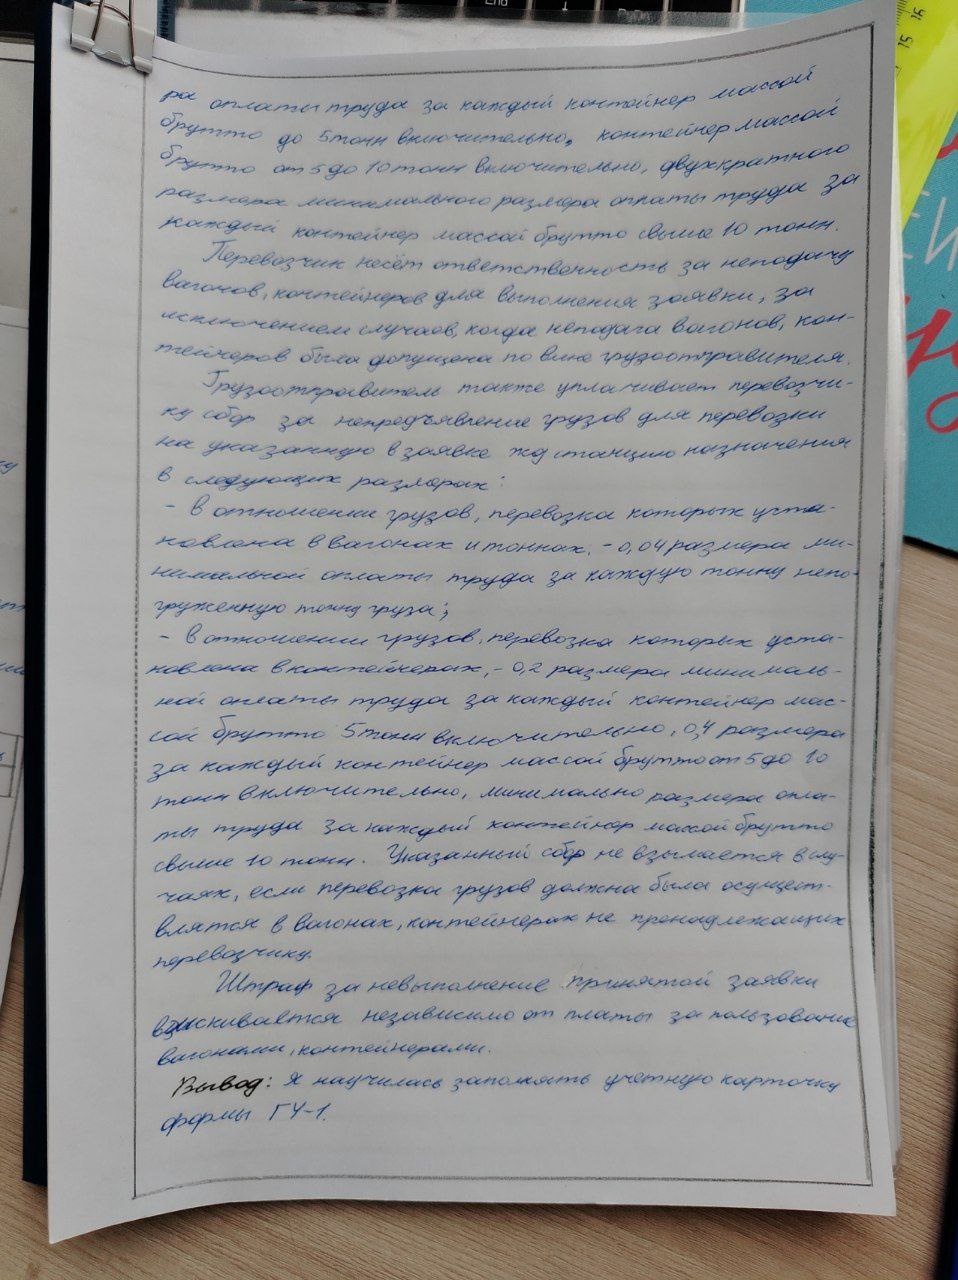 ра оплаты труда за каждый контейнер массой
брутто до 5 тонн включительно, контейнер массой
брутто от 5 до 10 тонн включительно, двухкратного
размера минимального размера оплаты труда за
каждый контейнер массой брутто свыше 10 тонн.
Перевозчик несёт ответственность за неподачу
вагонов, контейнеров для выполнения заявки, за
исключением случаев, когда неподача вагонов, кон-
тейнеров была допущена по вине грузоотправителя.
Грузоотправитель также уплачивает перевозчи-
ку сбор за непредъявление грузов для перевозки
на указанную в заявке жд станцию назначения
в следующих размерах:
- в отношении грузов, перевозка которых уста-
новлена в вагонах и тоннах, - 0,04 размера ми-
нимальной оплаты труда за каждую тонну непо-
груженную тонну груза;
- в отношении грузов, перевозка которых уста-
новлена в контейнерах, - 0,2 размера минималь-
ной оплаты труда за каждый контейнер мас-
сой брутто 5 тонн включительно, 0,4 размера
за каждый контейнер массой брутто от 5 до 10
тонн включительно, минимально размера опла-
ты труда за каждый контейнер массой брутто
свыше 10 тонн. Указанный сбор не взымается в слу-
чаях, если перевозка грузов должна была осущест-
влятся в вагонах, контейнерах не пренадлежащих
перевозчику.
Штраф за невыполнение принятой заявки
взыскивается независимо от платы за пользование
вагонами, контейнерами.
Вывод: Я научилась заполнять учетную карточку
формы ГУ-1.